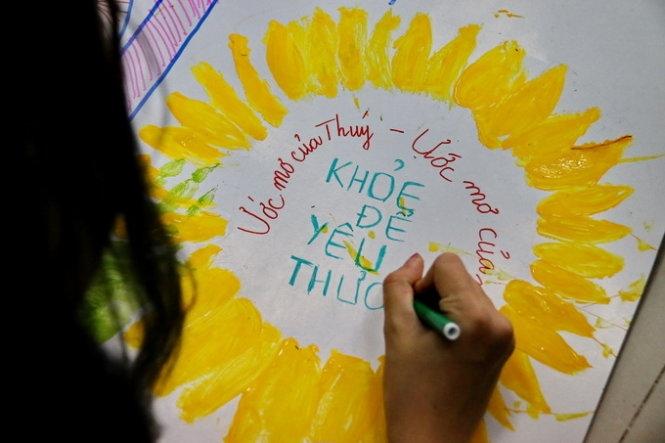 Ước mơ của Thuý – Ước mơ của
KHỎE
ĐỂ
YÊU
THƯƠ